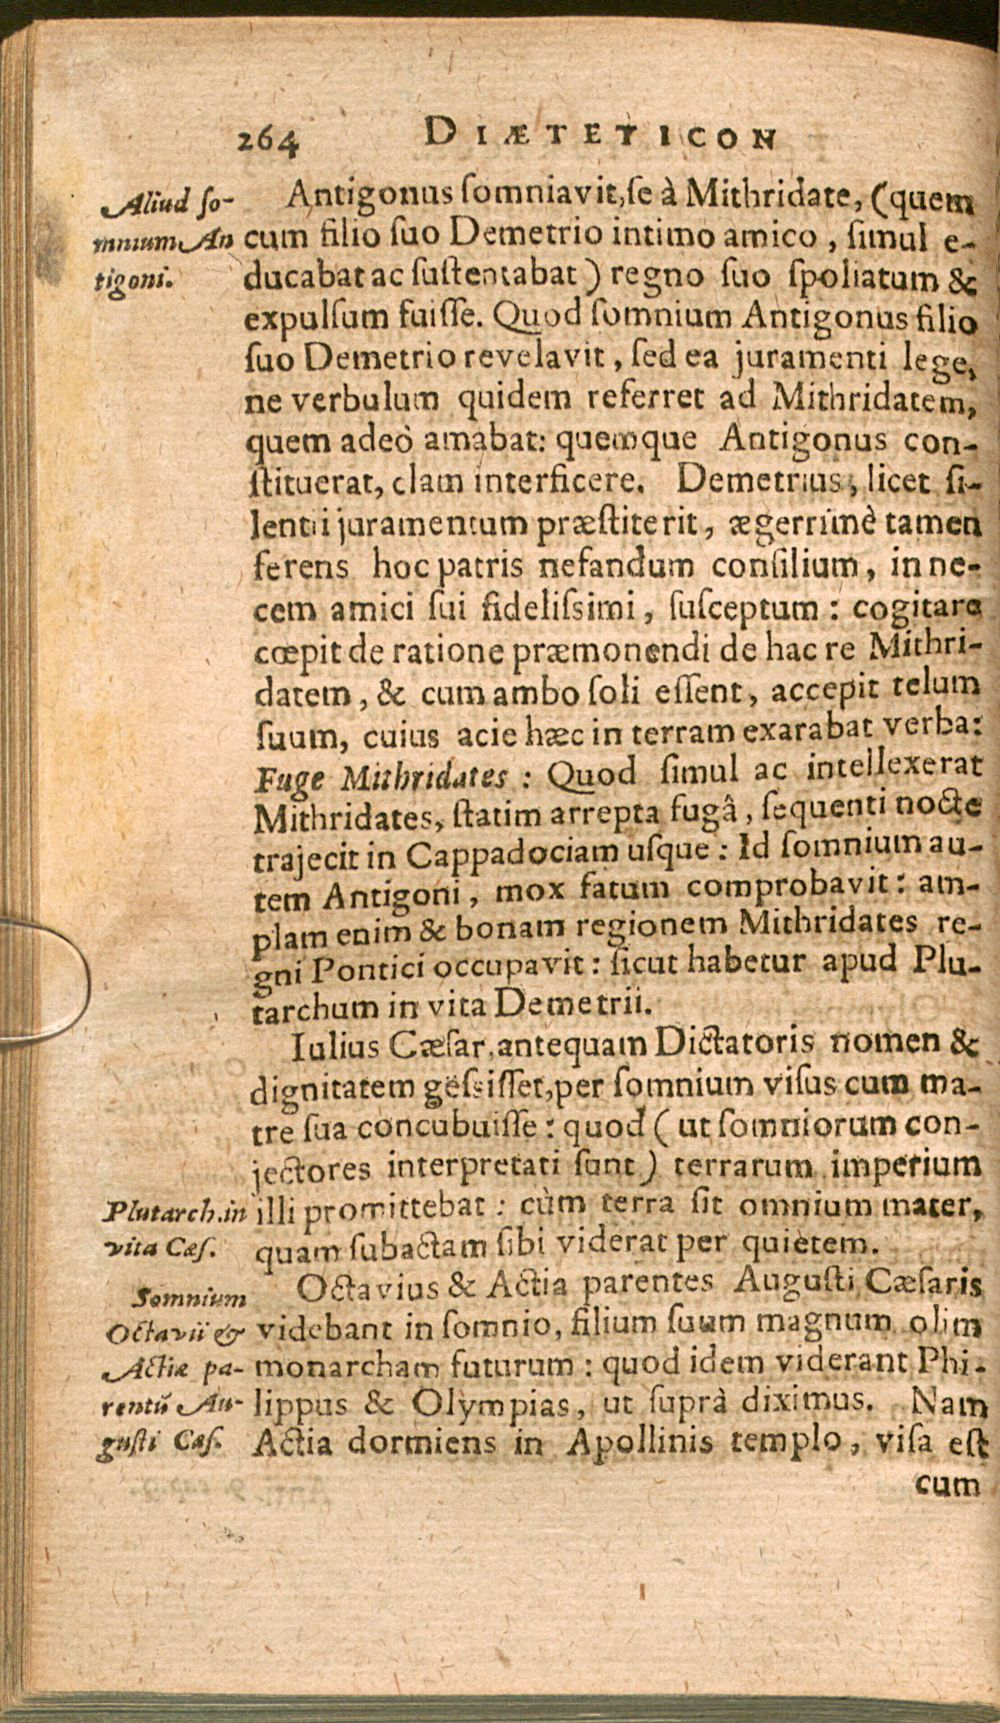 264 DIÆTETICON
Aliud so-
mnium An
tigoni.
Antigonus somniavit, se à Mithridate, (quem
cum filio suo Demetrio intimo amico, simul e-
ducabat ac sustentabat) regno suo spoliatum &
expulsum fuisse. Quod somnium Antigonus filio
suo Demetrio revelavit, sed ea juramenti lege,
ne verbulum quidem referret ad Mithridatem,
quem adeò amabat: quemque Antigonus con-
stituerat, clam interficere. Demetrius, licet si-
lentii juramentum præstiterit, ægerrimè tamen
ferens hoc patris nefandum consilium, in ne-
cem amici sui fidelissimi, susceptum: cogitare
cœpit de ratione præmonendi de hac re Mithri-
datem, & cum ambo soli essent, accepit telum
suum, cuius acie hæc in terram exarabat verba:
Fuge Mithridates: Quod simul ac intellexerat
Mithridates, statim arrepta fugâ, sequenti nocte
trajecit in Cappadociam usque: Id somnium au-
tem Antigoni, mox fatum comprobavit: am-
plam enim & bonam regionem Mithridates re-
gni Pontici occupavit: sicut habetur apud Plu-
tarchum in vita Demetrii.
Iulius Cæsar, antequam Dictatoris nomen &
dignitatem gessisset, per somnium visus cum ma-
tre sua concubuisse: quod (ut somniorum con-
jectores interpretati sunt) terrarum imperium
Plutarch. in
vita Cæs.
illi promittebat: cùm terra sit omnium mater,
quam subactam sibi viderat per quietem.
Somnium
Octavii &
Actiæ pa-
rentũ Au-
gusti Cæs.
Octavius & Actia parentes Augusti Cæsaris
videbant in somnio, filium suum magnum olim
monarcham futurum: quod idem viderant Phi-
lippus & Olympias, ut suprà diximus. Nam
Actia dormiens in Apollinis templo, visa est
cum